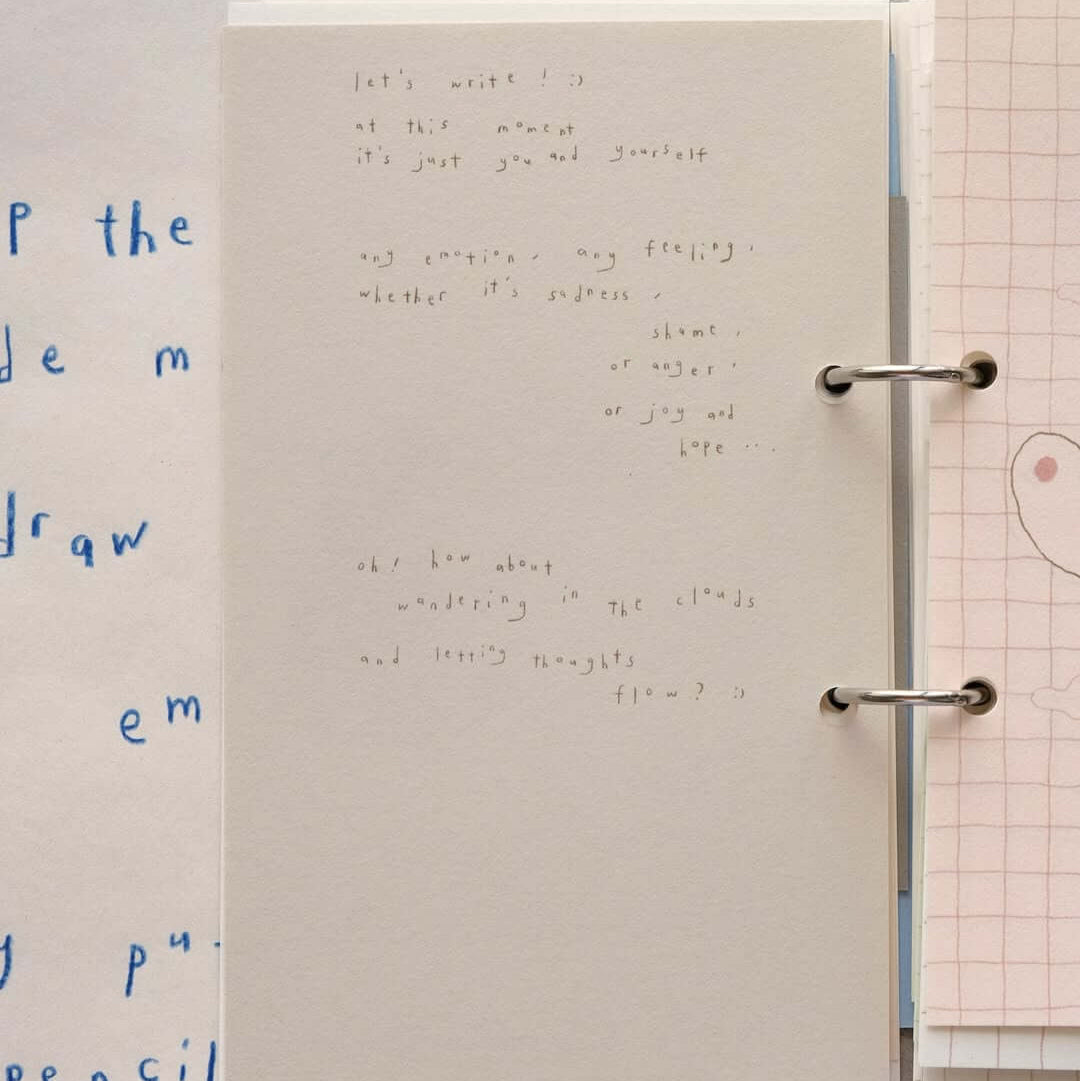 let's write ! :)
at this moment
it's just you and yourself
any emotion, any feeling,
whether it's sadness,
shame,
or anger,
or joy and
hope ...
oh! how about
wandering in the clouds
and letting thoughts
flow? :)
p the
de m
draw
em
y pu
pencil